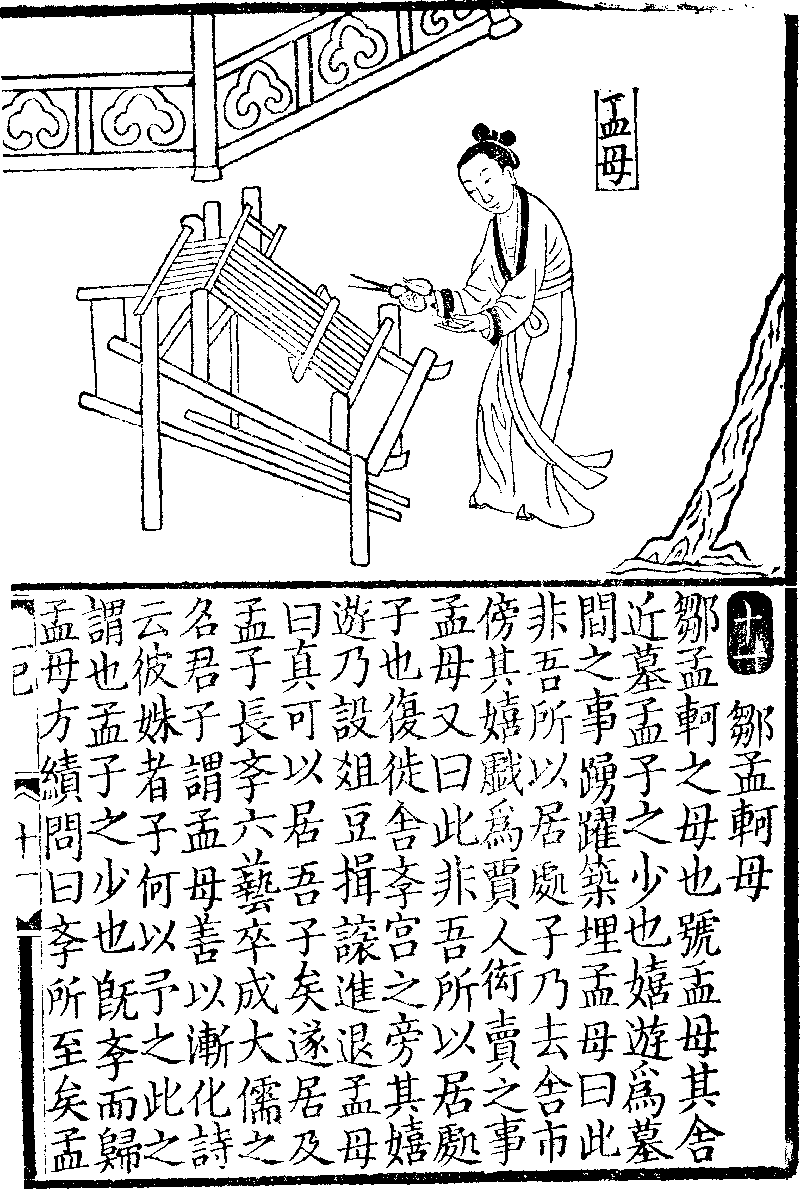 孟母
十一
鄒孟軻母
鄒孟軻之母也號孟母其舍
近墓孟子之少也嬉遊爲墓
間之事踴躍築埋孟母曰此
非吾所以居處子乃去舍市
傍其嬉戲爲賈人衒賣之事
孟母又曰此非吾所以居處
子也復徙舍斈宮之旁其嬉
遊乃設俎豆揖讓進退孟母
曰真可以居吾子矣遂居及
孟子長斈六藝卒成大儒之
名君子謂孟母善以漸化詩
云彼姝者子何以予之此之
謂也孟子之少也既斈而歸
孟母方績問曰斈所至矣孟
十一